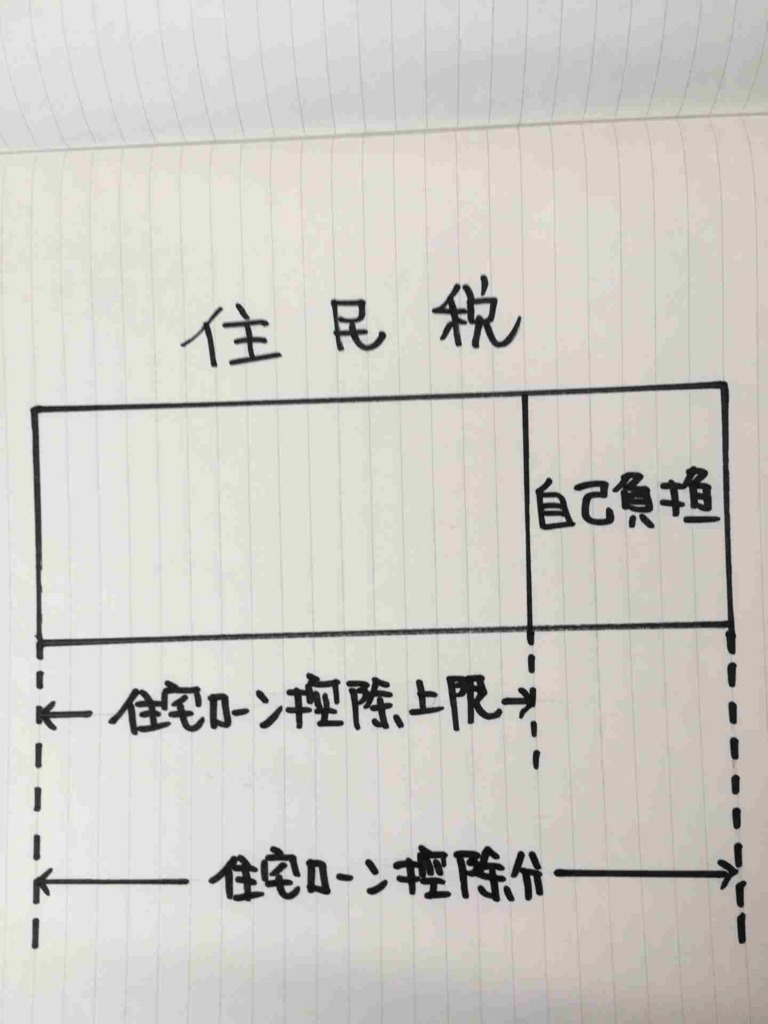 住民税
自己負担
住宅ローン控除上限
住宅ローン控除分